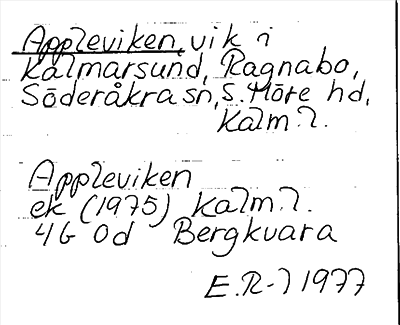 Appleviken, vik i
Kalmarsund, Ragnabo,
Söderåkra sn, S. Möre hd,
Kalm. l.
Appleviken
ek (1975) Kalm. l.
4G 0d Bergkvara
E.R-l 1977